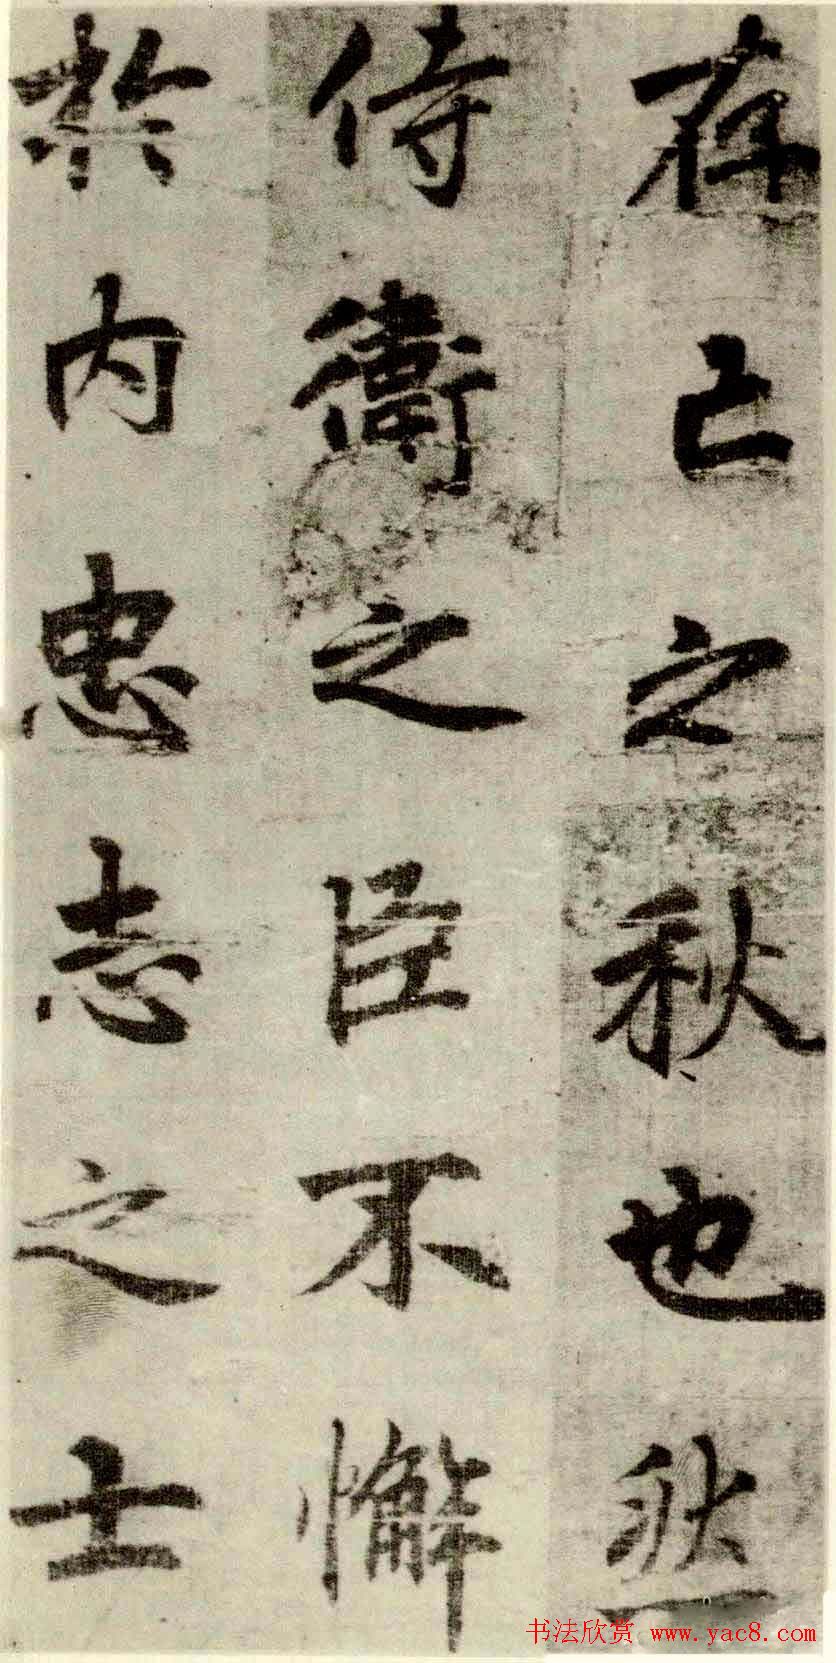 存亡之秋也然
侍衛之臣不懈
於内忠志之士
书法欣赏 www.yac8.com